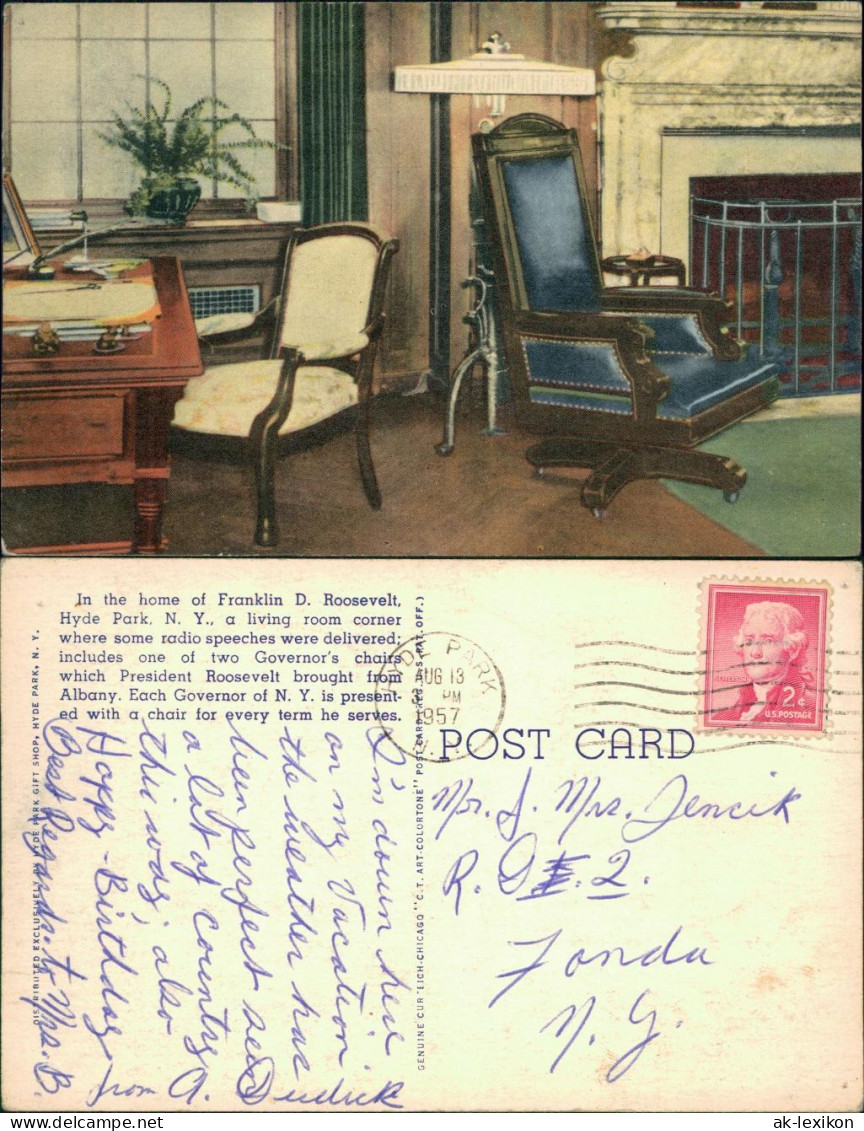 In the home of Franklin D. Roosevelt,
Hyde Park, N. Y., a living room corner
where some radio speeches were delivered;
includes one of two Governor's chairs
which President Roosevelt brought from
Albany. Each Governor of N. Y. is present-
ed with a chair for every term he serves.
DISTRIBUTED EXCLUSIVELY BY HYDE PARK GIFT SHOP, HYDE PARK, N. Y.
GENUINE CURTEICH-CHICAGO "C. T. ART-COLORTONE" POST CARD (REG. U.S. PAT. OFF.)
HYDE PARK
AUG 13
PM
1957
N.Y.
JEFFERSON
2¢
U.S. POSTAGE
POST CARD
I'm down here
on my Vacation.
the weather has
been perfect seen
a lot of country
this way; also
Happy-Birthday
from A.
Best Regards to Mrs. B.
Mr. & Mrs. Jencik
R. D. 2.
Fonda
N. Y.
ak-lexikon